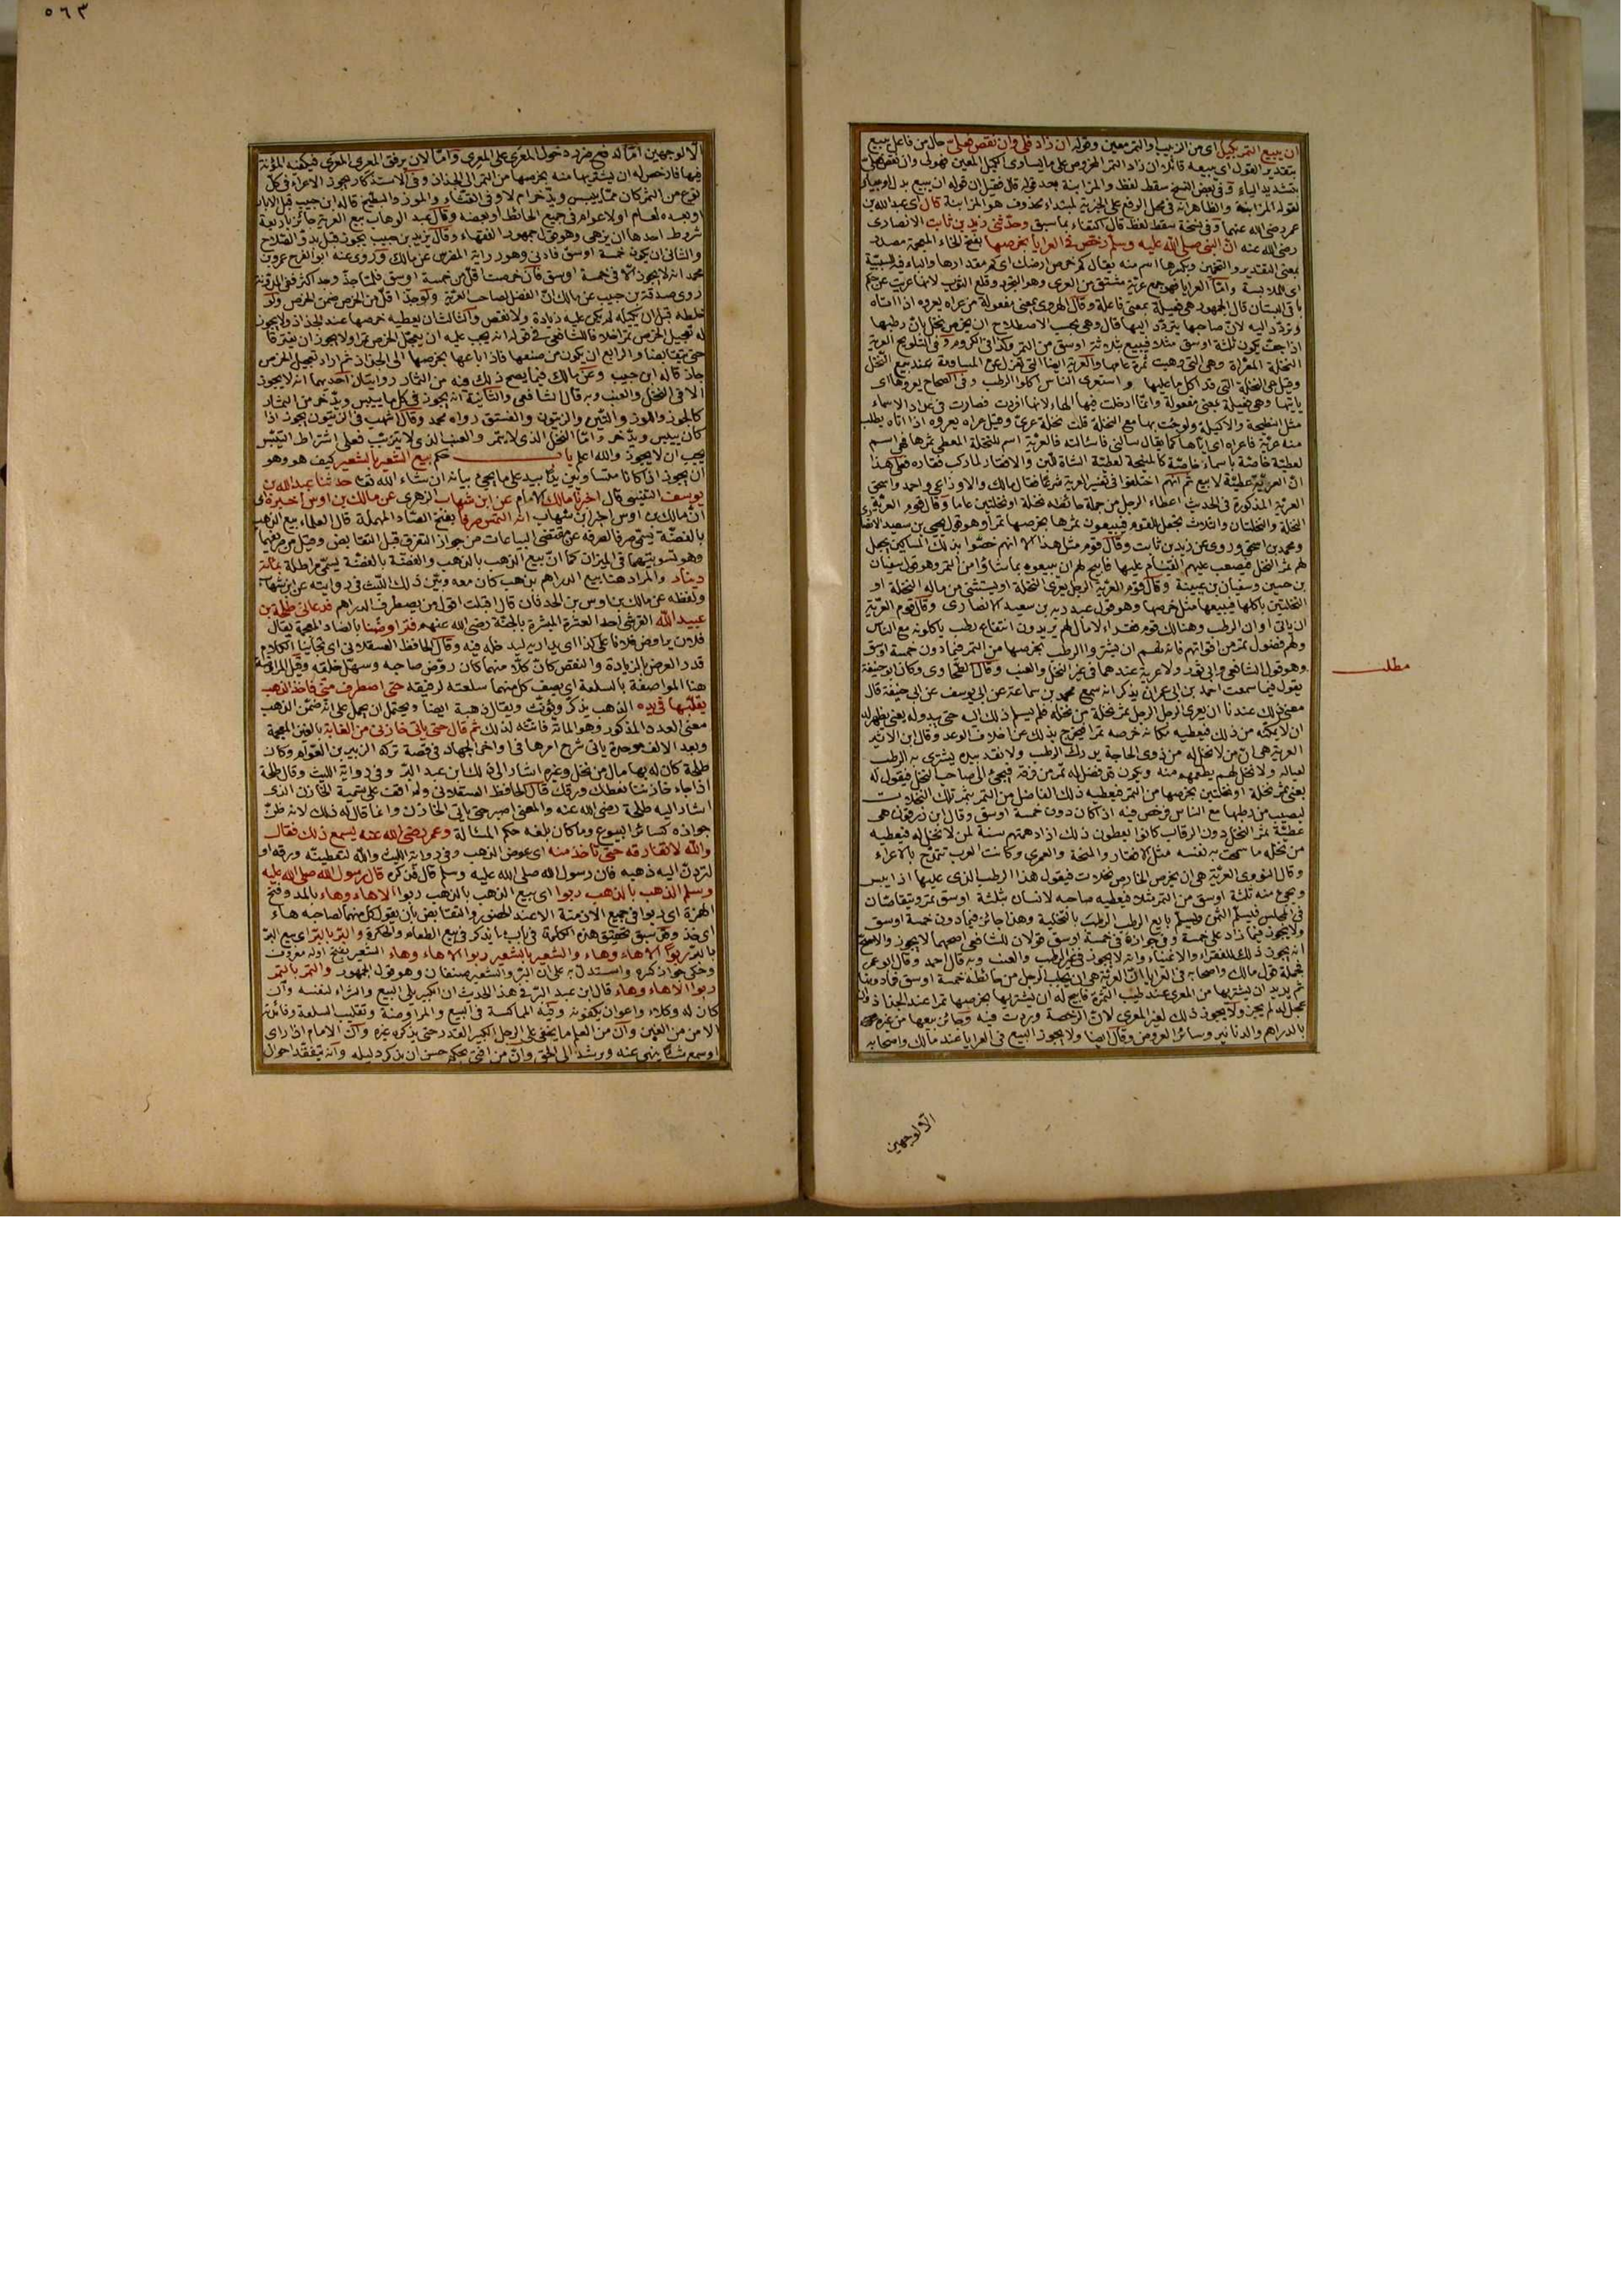 ٥٦٣
ان يبيع التمر بكيل اى من الزبيب او التمر معين وقوله ان زاد فلى وان نقص فعلىّ حال من فاعل يبيع
بتقدير القول اى يبيعه قائلا ان زاد التمر المخروص على ما يساوى الكيل المعين فهو لى وان نقص فعلىّ
بتشديد الياء وفى بعض النسخ سقط لفظ والمزابنة بعد قوله قال فقيل ان قوله ان يبيع بدل او بيان
لقوله المزابنة والظاهر انه فى محل الرفع على الخبرية لمبتداء محذوف هو المزابنة قال اى عبد الله بن
عمر رضى الله عنهما وفى نسخة سقط لفظ قال اكتفاء بما سبق وحدثنى زيد بن ثابت الانصارى
رضى الله عنه ان النبى صلى الله عليه وسلم رخص فى العرايا بخرصها بفتح الخاء المعجمة مصدر
بمعنى التقدير والتخمين وبكسرها اسم منه يقال كم خرص ارضك اى كم مقدارها والباء فيه للسببية
اى للملابسة وامّا العرايا فهو جمع عريّة مشتق من العرى وهو التجرد وقلع الثوب لانها عريت عن حكم
باقى البستان قال الجمهور هى فعيلة بمعنى فاعلة وقال الهروى بمعنى مفعولة من عراه يعروه اذا اتاه
وتردد اليه لانّ صاحبها يتردد اليها قال وهى بحسب الاصطلاح ان يخرص نخل بان رطبها
اذا جفت يكون ثلثة اوسق مثلا فيبيع بثلاثة اوسق من التمر وكذا فى الكروم وفى التلويح العرية
النخلة المعراة وهى التى وهبت ثمرة عامها والعرية ايضا التى تعزل عن المساومة عند بيع النخل
وقيل هى النخلة التى قد اكل ما عليها واستعرى الناس اكلوا الرطب وفى الصحاح يعروها اى
يأتيها وهى فعيلة بمعنى مفعولة وانما ادخلت فيها الهاء لانها افردت فصارت فى عداد الاسماء
مثل النطيحة والاكيلة ولو جئت بها مع النخلة قلت نخلة عرىّ وقيل عراه يعروه اذا اتاه يطلب
منه عريّة فاعراه اى اتاها كما يقال سالنى فاسألته فالعرية اسم للنخلة المعطى ثمرها فهى اسم
لعطيّة خاصّة باسماء خاصّة كالمنيحة لعطيّة الشاة للبن والافقار لما ركب فقاره فعلى هذا
انّ العريّة عطيّة لا بيع ثم انهم اختلفوا فى تفسير العرية شرعًا فقال مالك والاوزاعى واحمد واسحق
العرية المذكورة فى الحديث اعطاء الرجل من جملة حائطه نخلة او نخلتين عاما وقال قوم العرية
النخلة والنخلتان والثلاث يجعل للقوم فيبيعون ثمرها بخرصها تمرا وهو قول يحيى بن سعيد
ومحمد بن اسحق وروى عن زيد بن ثابت وقال قوم مثل هذا الا انهم خصّوا بذلك المساكين يجعل
لهم ثمر النخل فيصعب عليهم القيام عليها فابيح لهم ان يبيعوه بما شاؤا من التمر وهو قول سفيان
بن حسين وسفيان بن عيينة وقال قوم العرية الرجل يعرى النخلة او يستثنى من ماله النخلة او
النخلتين ياكلها فيبيعها مثل خرصها وهو قول عبد ربه بن سعيد الانصارى وقال قوم العرية
ان ياتى اوان الرطب وهنالك قوم فقراء لا مال لهم يريدون ابتياع رطب ياكلونه مع الناس
ولهم فضول تمر من اقواتهم فابيح لهم ان يشتروا الرطب بخرصها من التمر فيما دون خمسة اوسق
وهو قول الشافعى وابى ثور ولا عرية عندهما فى غير النخل والعنب وقال الطحاوى وكان ابو حنيفة
يقول فيما سمعت احمد بن ابى عمران يذكر انه سمع محمد بن سماعة عن ابى يوسف عن ابى حنيفة قال
معنى ذلك عندنا ان يعرى الرجل الرجل ثمر نخلة من نخله فلم يسلم ذلك اليه حتى يبدو له يعنى يظهر له
ان لا يمكنه من ذلك فيعطيه مكانه خرصه تمرا فيخرج بذلك عن اخلاف الوعد وقال ابن الاثير
العرية هى ان من لا نخل له من ذوى الحاجة يدرك الرطب ولا نقد بيده يشترى به الرطب
لعياله ولا نخل لهم يطعمهم منه ويكون قد فضل له تمر من قوته فيجئ الى صاحب النخل فيقول له
بعنى ثمر نخلة او نخلتين بخرصها من التمر فيعطيه ذلك الفاضل من التمر بثمر تلك النخلات
ليصيب من رطبها مع الناس فرخص فيه اذا كان دون خمسة اوسق وقال ابن زرقون هى
عطيّة ثمر النخل دون الرقاب كانوا يعطون ذلك اذا دهمتهم سنة لمن لا نخل له فيعطيه
من نخله ما سمحت به نفسه مثل الافقار والمنحة والعمرى وكانت العرب تتمدّح بالاعراء
وقال النووى العريّة هى ان يخرص الخارص نخلات فيقول هذا الرطب الذى عليها اذا يبس
ويجئ منه ثلثة اوسق من التمر مثلا فيعطيه صاحبه لانسان بثلثة اوسق تمر ويتقابضان
فى المجلس فيسلم الثمن ويسلم بايع الرطب الرطب بالتخلية وهذا جائز فيما دون خمسة اوسق
ولا يجوز فيما زاد على خمسة وفى جوازه فى خمسة اوسق قولان للشافعى اصحهما لا يجوز والاصح
انه يجوز ذلك للفقراء والاغنياء وانه لا يجوز فى غير الرطب والعنب وبه قال احمد وقال ابو عمر
فجملة قول مالك واصحابه فى العرايا انّ العرية هى ان يهب الرجل من حائطه خمسة اوسق فما دونها
ثم يريد ان يشتريها من المعرى عند طيب الثمرة فابيح له ان يشتريها بخرصها تمرا عند الجذاذ وان
عجل له لم يجز ولا يجوز ذلك لغير المعرى لانّ الرخصة وردت فيه وجائز بيعها من غيره
بالدراهم والدنانير وسائر العروض وقال ايضا ولا يجوز البيع فى العرايا عند مالك واصحابه
الّا لوجهين
مطلب
الّا لوجهين امّا لدفع ضرر دخول المعرى على المعرى وامّا لان يرفق المعرى المعرى فيكفيه المؤنة
فيها فارخص له ان يشتريها منه بخرصها من التمر الى الجذاذ وفى الاستذكار يجوز الاعراء فى كل
نوع من الثمر كان ممّا ييبس ويدّخر ام لا وفى القثاء والموز والبطيخ قاله ابن حبيب قبل الابار
وبعده لعام او لاعوام فى جميع الحائط او بعضه وقال عبد الوهاب بيع العرية جائز باربعة
شروط احدها ان يزهى وهو قول جمهور الفقهاء وقال يزيد بن حبيب يجوز قبل بدوّ الصلاح
والثانى ان يكون خمسة اوسق فادنى وهو رواية المصريين عن مالك وروى عنه ابو الفرج عمرو بن
محمد انه لا يجوز الا فى خمسة اوسق فان خرصت اقل من خمسة اوسق فلما جذّ وجد اكثر ففى المدونة
روى صدقة بن حبيب عن مالك انّ الفضل لصاحب العرية ولو جذّ اقل من الخرص ضمن الخرص ولو
خلطه قبل ان يكيله لم يكن عليه زيادة ولا نقص والثالث ان يعطيه خرصها عند الجذاذ ولا يجوز
له تعجيل الخرص تمرا خلافا للشافعى فى قوله انه يجب عليه ان يعجل الخرص تمرا ولا يجوز ان يفترقا
حتى يتقابضا والرابع ان يكون من صنفها فاذا باعها بخرصها الى الجذاذ ثم اراد تعجيل الخرص
جاز قاله ابن حبيب وعن مالك فيما يصح ذلك فيه من الثمار روايتان احديهما انه لا يجوز
الا فى النخل والعنب وبه قال الشافعى والثانية انه يجوز فى كل ما ييبس ويدّخر من الثمار
كالجوز واللوز والتين والزيتون والفستق رواه محمد وقال اشهب فى الزيتون يجوز اذا
كان ييبس ويدّخر وامّا النخل الذى لا يتمر والعنب الذى لا يتزبّب فعلى اشتراط التيبّس
يجب ان لا يجوز والله اعلم باب حكم بيع الشعير بالشعير كيف هو وهو
ان يجوز اذا كانا متساويين يدًا بيد على ما يجئ بيانه ان شاء الله تعالى حدثنا عبد الله بن
يوسف التنيسى قال اخبرنا مالك الامام عن ابن شهاب الزهرى عن مالك بن اوس اخبره اى
انّ مالك بن اوس اخبر ابن شهاب انه التمس صرفا بفتح الصاد المهملة قال العلماء بيع الذهب
بالفضّة يسمّى صرفا لصرفه عن مقتضى البياعات من جواز التفرق قبل التقابض وقيل من صريفهما
وهو تسويتهما فى الميزان كما انّ بيع الذهب بالذهب والفضّة بالفضّة يسمّى مراطلة بمائة
دينار والمراد هنا بيع الدراهم بذهب كان معه وبيّن ذلك الليث فى روايته عن ابن شهاب
ولفظه عن مالك بن اوس بن الحدثان قال اقبلت اقول من يصطرف الدراهم فدعانى طلحة بن
عبيد الله القرشى احد العشرة المبشرة بالجنّة رضى الله عنهم فتراوضنا بالضاد المعجمة يقال
فلان يراوض فلانا على كذا اى يداريه ليدخله فيه وقال الحافظ العسقلانى اى تجاذبنا الكلام
قدر العوض بالزيادة والنقص كان كلا منهما كان روّض صاحبه وسهّل خلقه وقيل المراوضة
هنا المواصفة بالسلعة اى يصف كل منهما سلعته لرفيقه حتى اصطرف منّى فاخذ الذهب
يقلّبها فى يده الذهب يذكّر ويؤنّث ويقال ذهبة ايضا ويحتمل ان يحمل على انه ضمّن الذهب
معنى العدد المذكور وهو المائة فانّثه لذلك ثم قال حتى ياتى خازنى من الغابة بالغين المعجمة
وبعد الالف موحدة ياتى شرح امرها فى اواخر الجهاد فى قصة تركة الزبير بن العوّام وكان
طلحة كان له بها مال من نخل وغيره اشار الى ذلك ابن عبد البرّ وفى رواية الليث وقال طلحة
اذا جاء خازننا نعطك ورقك قال الحافظ العسقلانى ولم اقف على تسمية الخازن الذى
اشار اليه طلحة رضى الله عنه والمعنى اصبر حتى ياتى الخازن وانما قال له ذلك لانه ظنّ
جوازه كسائر البيوع وما كان بلغه حكم المسئالة وعمر رضى الله عنه يسمع ذلك فقال
والله لا تفارقه حتى تأخذ منه اى عوض الذهب وفى رواية الليث والله لتعطينّه ورقه او
لتردنّ اليه ذهبه فان رسول الله صلى الله عليه وسلم قال فذكره قال رسول الله صلى الله عليه
وسلم الذهب بالذهب ربوا اى بيع الذهب بالذهب ربوا الا هاء وهاء بالمد وفتح
الهمزة اى ربوا فى جميع الازمنة الا عند الحضور والتقابض بأن يقول كل منهما لصاحبه هاء
اى خذ وقد سبق تحقيق هذه الكلمة فى باب ما يذكر فى بيع الطعام والحكرة والبرّ بالبرّ اى بيع البرّ
بالبرّ ربوا الا هاء وهاء والشعير بالشعير ربوا الا هاء وهاء الشعير بفتح اوله معروف
وحكى جواز كسره واستدل به على ان البرّ والشعير صنفان وهو قول الجمهور والتمر بالتمر
ربوا الا هاء وهاء قال ابن عبد البرّ فى هذا الحديث ان الكبير يلى البيع والشراء لنفسه وان
كان له وكلاء واعوان يكفونه وفيه المماكسة فى البيع والمراوضة وتقليب السلعة وفائدته
الامن من الغبن وان من العلم ما يخفى على الرجل الكبير القدر حتى يذكره غيره وان الامام اذا راى
او سمع شيئًا ينهى عنه ويرشد الى الحق وانّ من افتى بحكم حسن ان يذكر دليله وان يتفقّد احوال